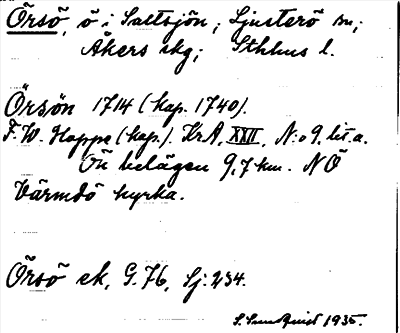 Örsö, ö i Saltsjön; Ljusterö sn;
Åkers skg; Sthlms l.
Örsön 1714 (kop. 1740).
F. W. Hoppe (kop.). Kr A, XXII, N:o 9, lit. a.
Ön belägen 9,7 km. NÖ
Värmdö kyrka.
Örsö ek, G. 76, Sj: 234.
S. Sundquist 1935.